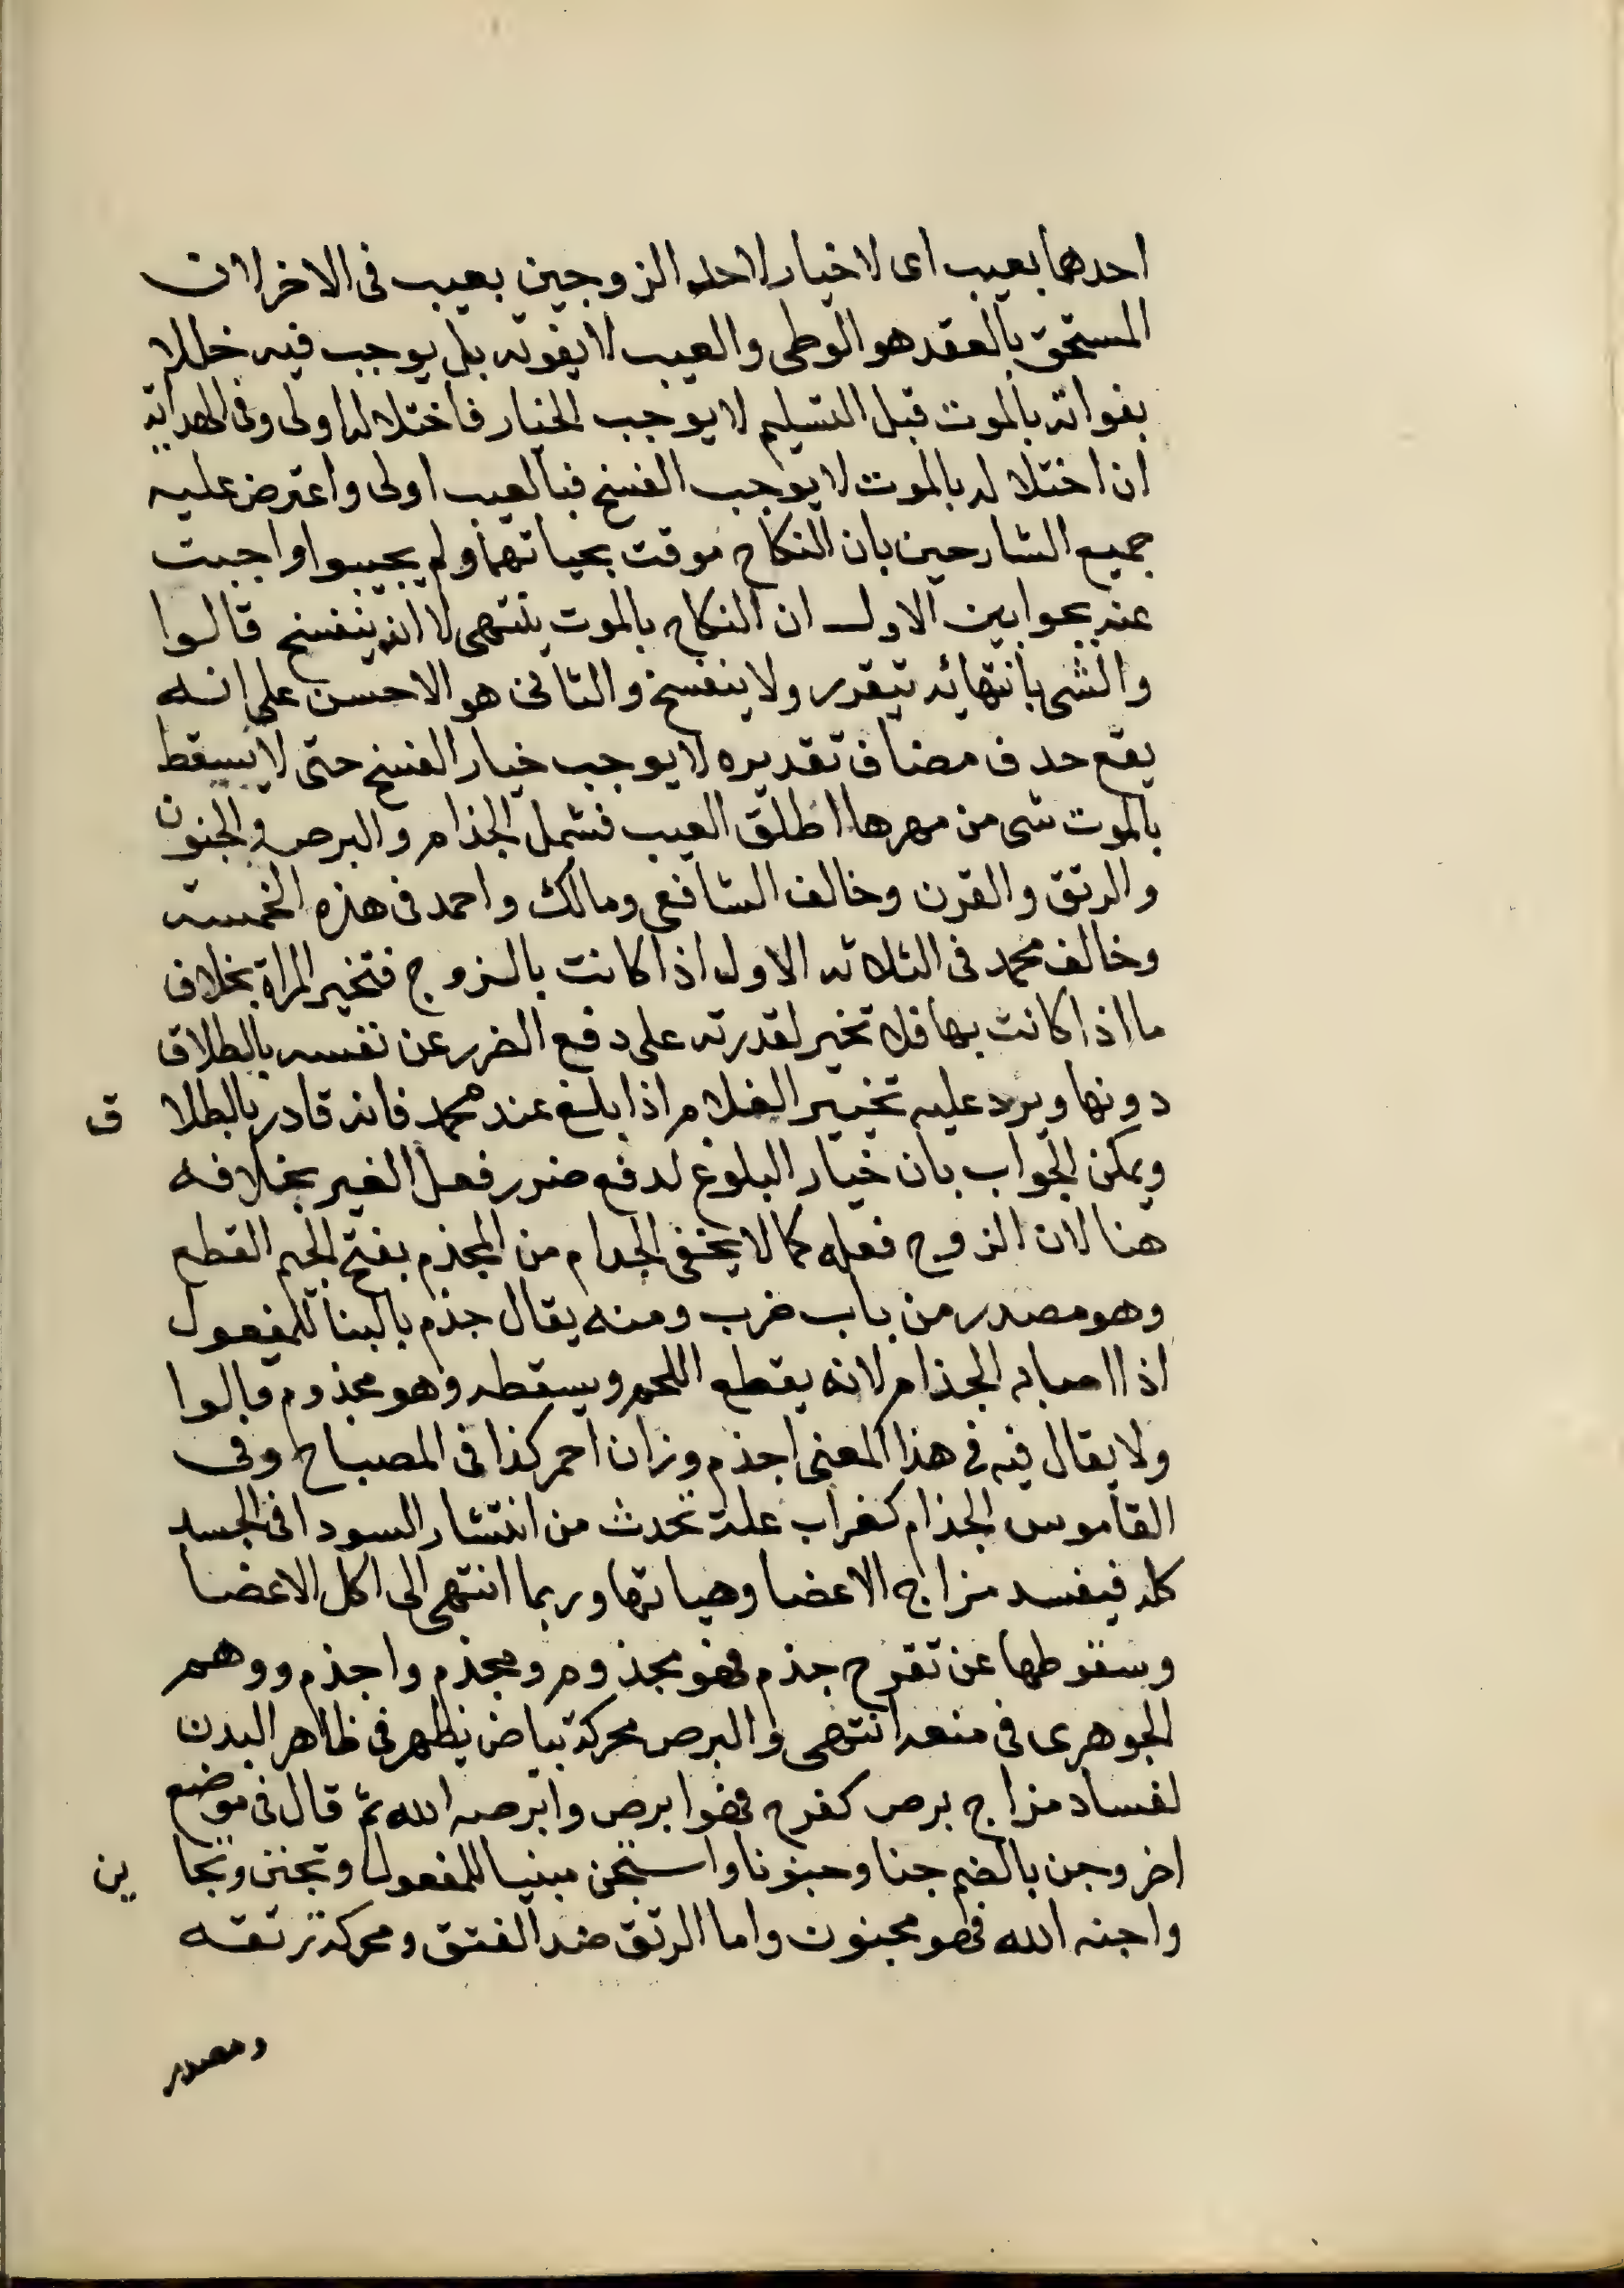 احدهما بعيب اى لا خيار لاحد الزوجين بعيب فى الاخر لان
المستحق بالعقد هو الوطى والعيب لا يفوته بل يوجب فيه خللا
بفواته بالموت قبل التسليم لا يوجب الخيار فاختلاله اولى وفى الهداية
ان اختلاله بالموت لا يوجب الفسخ فبالعيب اولى واعترض عليه
جميع الشارحين بان النكاح موقت بحياتهما ولم يجيبوا واجبت
عنه بجوابين الاول ان النكاح بالموت ينتهى لا انه ينفسخ قالوا
والشى بانتهائه يتقرر ولا ينفسخ والثانى هو الاحسن على انه
يقع حدف مضاف تقديره لا يوجب خيار الفسخ حتى لا يسقط
بالموت شى من مهرها اطلق العيب فشمل الجذام والبرص والجنون
والرتق والقرن وخالف الشافعى ومالك واحمد فى هذه الخمسة
وخالف محمد فى الثلاثه الاول اذا كانت بالزوج فتخير المراة بخلاف
ما اذا كانت بها فلا تخير لقدرته على دفع الضرر عن نفسه بالطلاق
دونها ويرد عليه تخيير الغلام اذا بلغ عند محمد فانه قادر بالطلا ق
ويمكن الجواب بان خيار البلوغ لدفع ضرر فعل الغير بخلافه
هنا لان الزوج فعله كما لا يخفى الجدام من الجذم بفتح الجيم القطع
وهو مصدر من باب ضرب ومنه يقال جذم بالبنا للمفعول
اذا اصابه الجذام لانه يقطع اللحم ويسقطه وهو مجذوم قالوا
ولا يقال فيه فى هذا المعنى اجذم وزان احمر كذا فى المصباح وفى
القاموس الجذام كغراب علة تحدث من انتشار السودا فى الجسد
كله فيفسد مزاج الاعضا وهياتها وربما انتهى الى اكل الاعضا
وسقوطها عن تقرح جذم فهو مجذوم ومجذم واجذم ووهم
الجوهرى فى منعه انتهى والبرص محركة بياض يظهر فى ظاهر البدن
لفساد مزاج برص كفرح فهو ابرص وابرصه الله ثم قال فى موضع
اخر وجن بالضم جنا وجنونا واستجن مبنيا للمفعول وتجنن وتجا ين
واجنه الله فهو مجنون واما الرتق ضد الفتق ومحركة رتقه
ومصدر